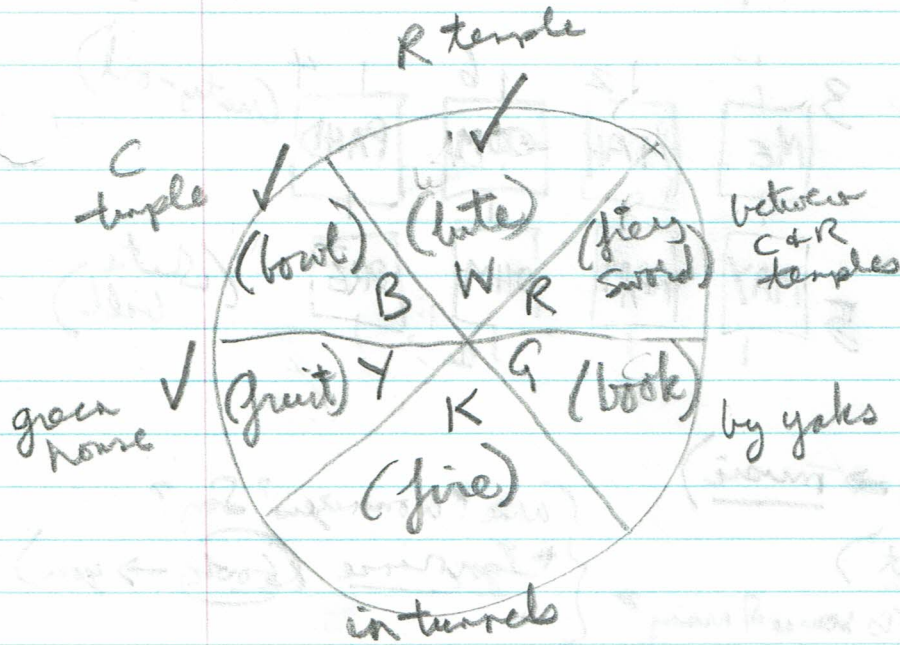 R temple
C
temple
(bowl)
B
(lute)
W
(fiery
sword)
R
between
C & R
temples
green
house
(fruit) Y
K
(fire)
G (book)
by yaks
in tunnels